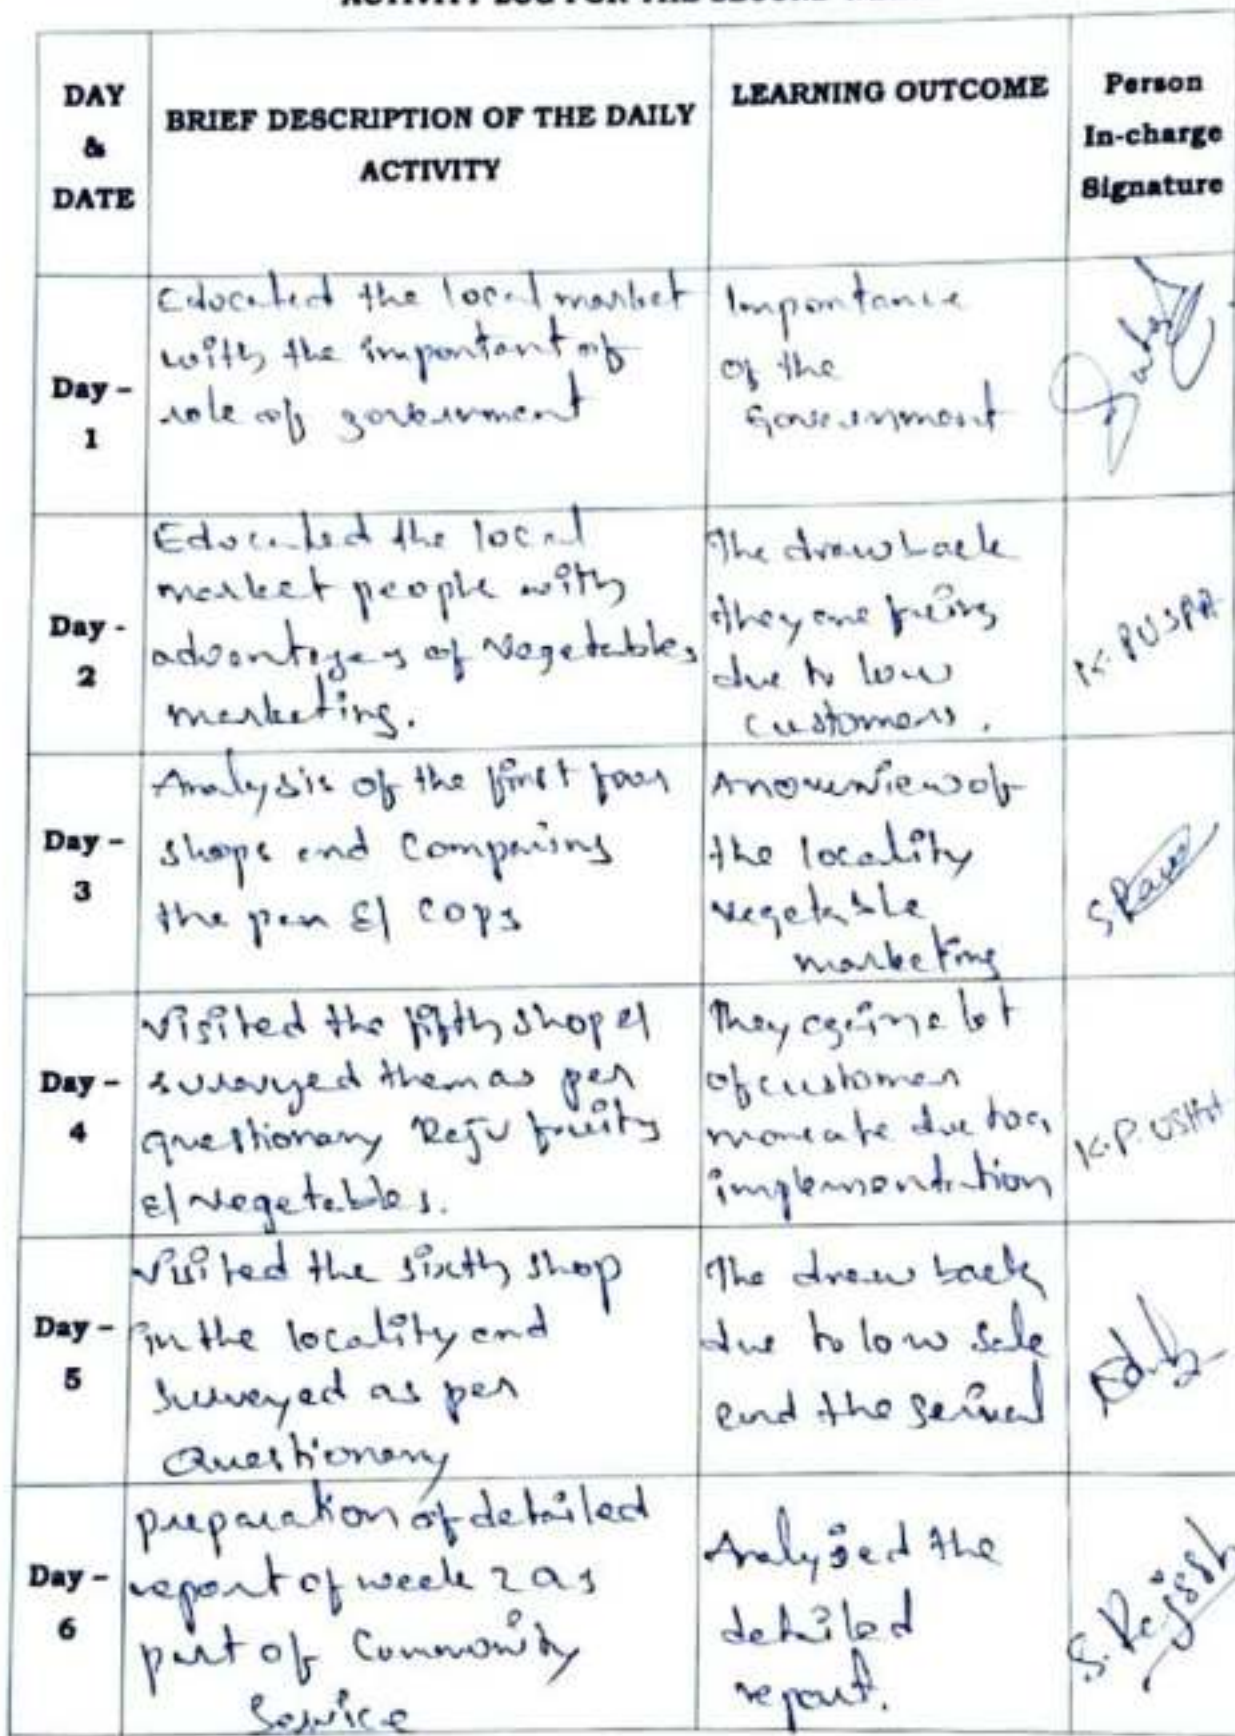 ACTIVITY LOG FOR THE SECOND WEEK
DAY
&
DATE
BRIEF DESCRIPTION OF THE DAILY
ACTIVITY
LEARNING OUTCOME
Person
In-charge
Signature
Day –
1
Educated the local market
with the important of
role of government
Importance
of the
Government
Day -
2
Educated the local
market people with
advantages of vegetables
marketing.
The drawback
they are facing
due to low
customers.
K. PUSPA
Day –
3
Analysis of the first four
shops and Comparing
the pen & cops
An overview of
the locality
vegetable
marketing
Day –
4
Visited the fifth shop &
surveyed them as per
questionary Raju fruits
& vegetables.
They a lot
of customer
due to
implementation
Day –
5
Visited the sixth shop
in the locality and
surveyed as per
Questionary
The draw back
due to low sale
and the
Day –
6
preparation of detailed
report of week 2 as
part of Community
Service
Analysed the
detailed
report.